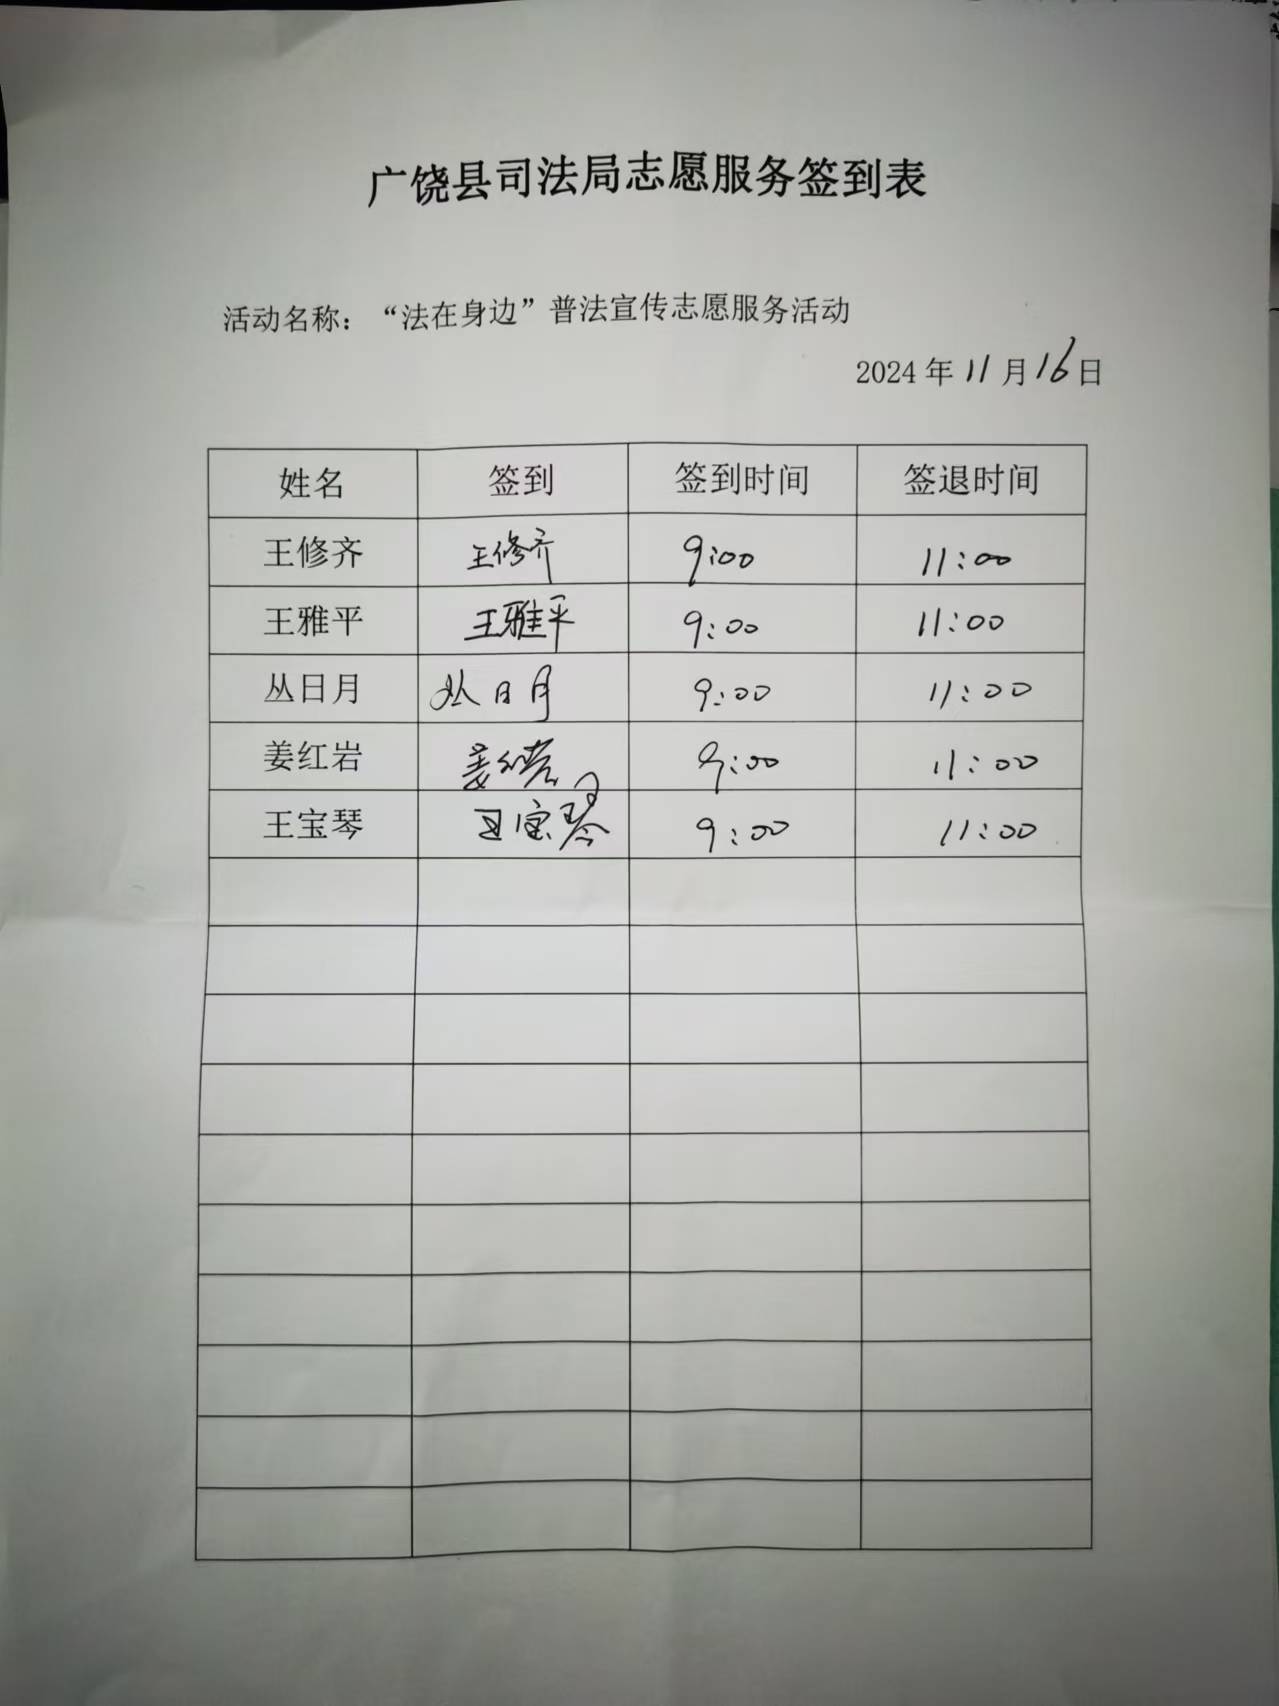 广饶县司法局志愿服务签到表
活动名称：“法在身边”普法宣传志愿服务活动
2024年11月16日
姓名 签到 签到时间 签退时间
王修齐 王修齐 9:00 11:00
王雅平 王雅平 9:00 11:00
丛日月 丛日月 9:00 11:00
姜红岩 姜红岩 9:00 11:00
王宝琴 王宝琴 9:00 11:00